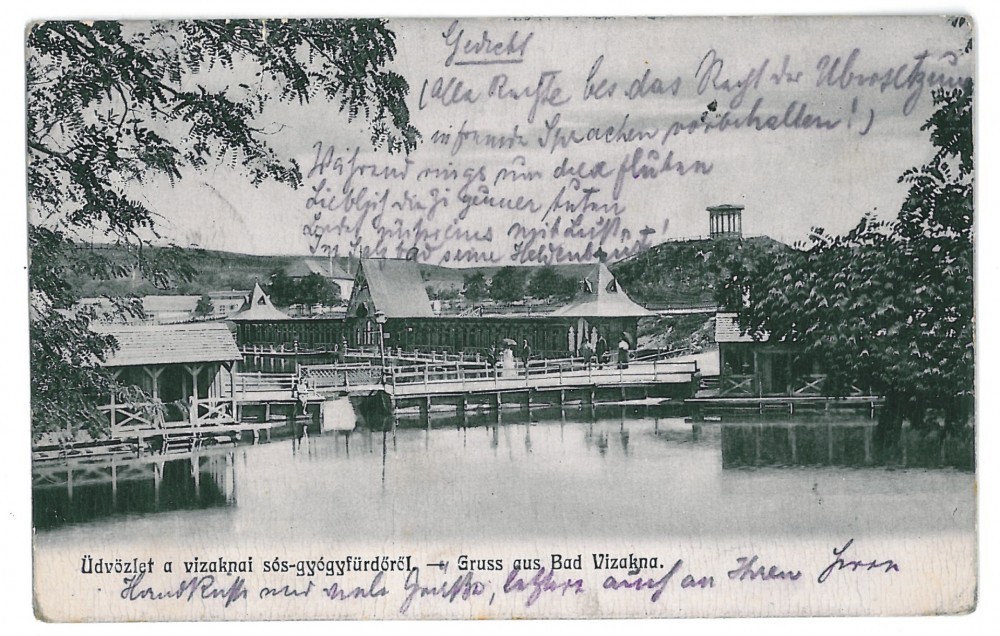 Gedicht
(Alle Rechte bes das Recht der Übersetzung
in fremde Sprachen vorbehalten!)
Während rings um die fluten
Lieblich die Zigeuner tuten
mit Lust
Im Solbad seine Heldenbrust!
Üdvözlet a vizaknai sós-gyógyfürdőről. — Gruss aus Bad Vizakna.
Handküsse und viele Grüße, letztere auch an Ihren Herrn